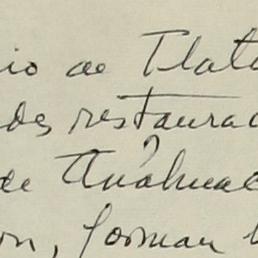 io de Tlate
des restaurac
de Anáhuac
on, forman